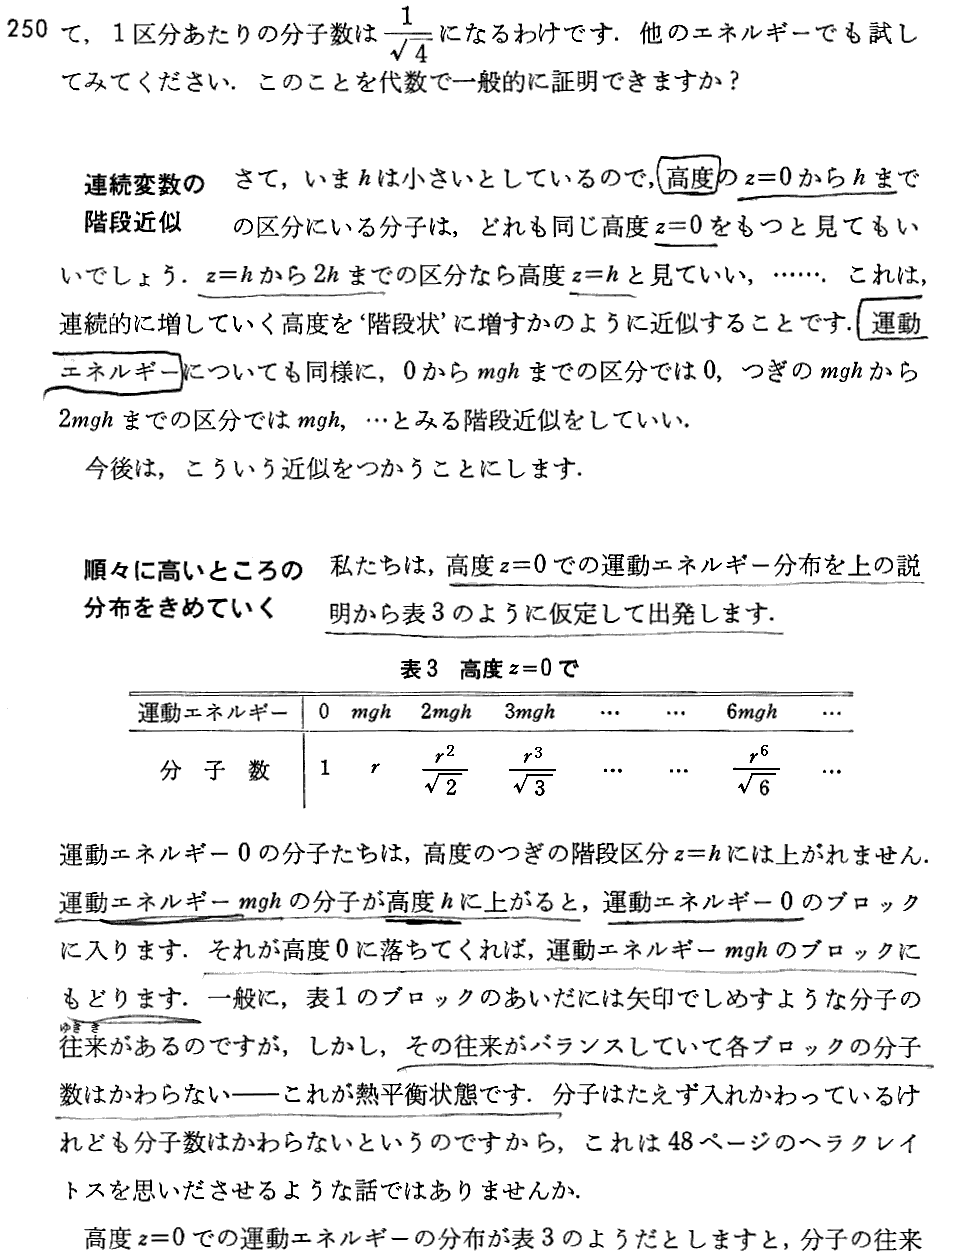 250 て，1区分あたりの分子数は 1/√4 になるわけです．他のエネルギーでも試し
てみてください．このことを代数で一般的に証明できますか？
連続変数の
階段近似
さて，いまhは小さいとしているので，高度のz=0からhまで
の区分にいる分子は，どれも同じ高度z=0をもつと見てもい
いでしょう．z=hから2hまでの区分なら高度z=hと見ていい，……．これは，
連続的に増していく高度を‘階段状’に増すかのように近似することです．運動
エネルギーについても同様に，0からmghまでの区分では0，つぎのmghから
2mghまでの区分ではmgh，…とみる階段近似をしていい．
今後は，こういう近似をつかうことにします．
順々に高いところの
分布をきめていく
私たちは，高度z=0での運動エネルギー分布を上の説
明から表3のように仮定して出発します．
表3 高度z=0で
運動エネルギー 0 mgh 2mgh 3mgh … … 6mgh …
分子数 1 r r²/√2 r³/√3 … … r⁶/√6 …
運動エネルギー0の分子たちは，高度のつぎの階段区分z=hには上がれません．
運動エネルギーmghの分子が高度hに上がると，運動エネルギー0のブロック
に入ります．それが高度0に落ちてくれば，運動エネルギーmghのブロックに
もどります．一般に，表1のブロックのあいだには矢印でしめすような分子の
ゆきき
往来があるのですが，しかし，その往来がバランスしていて各ブロックの分子
数はかわらない——これが熱平衡状態です．分子はたえず入れかわっているけ
れども分子数はかわらないというのですから，これは48ページのヘラクレイ
トスを思いださせるような話ではありませんか．
高度z=0での運動エネルギーの分布が表3のようだとしますと，分子の往来